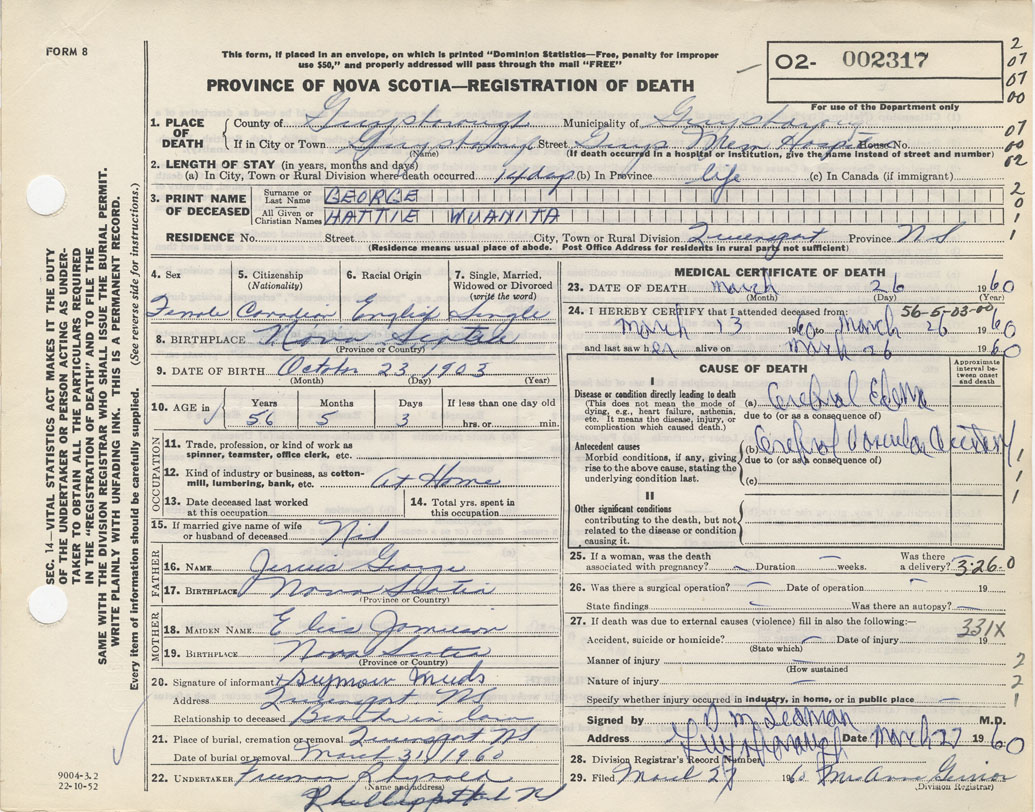 FORM 8
This form, if placed in an envelope, on which is printed "Dominion Statistics—Free, penalty for improper
use $50," and properly addressed will pass through the mail "FREE"
PROVINCE OF NOVA SCOTIA—REGISTRATION OF DEATH
O2- 002317
For use of the Department only
2
07
07
00
07
00
02
2
0
1
1
1. PLACE OF DEATH
County of Guysborough Municipality of Guysborough
If in City or Town Guysborough Street Guys Mem Hospital House No.
(Name) (If death occurred in a hospital or institution, give the name instead of street and number)
2. LENGTH OF STAY (in years, months and days)
(a) In City, Town or Rural Division where death occurred 14 days (b) In Province life (c) In Canada (if immigrant)
3. PRINT NAME OF DECEASED
Surname or Last Name GEORGE
All Given or Christian Names HATTIE WUANITA
RESIDENCE No. Street City, Town or Rural Division Queensport Province NS
(Residence means usual place of abode. Post Office Address for residents in rural parts not sufficient)
4. Sex Female
5. Citizenship (Nationality) Canadian
6. Racial Origin English
7. Single, Married, Widowed or Divorced (write the word) Single
8. BIRTHPLACE Nova Scotia
(Province or Country)
9. DATE OF BIRTH October 23, 1903
(Month) (Day) (Year)
10. AGE in Years 56 Months 5 Days 3 If less than one day old hrs. or min.
OCCUPATION
11. Trade, profession, or kind of work as
spinner, teamster, office clerk, etc.
12. Kind of industry or business, as cotton-
mill, lumbering, bank, etc. At Home
13. Date deceased last worked
at this occupation
14. Total yrs. spent in
this occupation
15. If married give name of wife
or husband of deceased Nil
FATHER
16. NAME George
17. BIRTHPLACE Nova Scotia
(Province or Country)
MOTHER
18. MAIDEN NAME Jamieson
19. BIRTHPLACE Nova Scotia
(Province or Country)
20. Signature of informant Seymour
Address Queensport NS
Relationship to deceased Brother in law
21. Place of burial, cremation or removal Queensport NS
Date of burial or removal March 31, 1960
22. UNDERTAKER Freeman
(Name and address)
MEDICAL CERTIFICATE OF DEATH
23. DATE OF DEATH March 26 1960
(Month) (Day) (Year)
56-5-03-00
24. I HEREBY CERTIFY that I attended deceased from:
March 13 1960 to March 26 1960
and last saw her alive on March 26 1960
CAUSE OF DEATH
Approximate interval between onset and death
I
Disease or condition directly leading to death
(This does not mean the mode of
dying, e.g., heart failure, asthenia,
etc. It means the disease, injury, or
complication which caused death.)
(a) Cerebral Edema
due to (or as a consequence of)
Antecedent causes
Morbid conditions, if any, giving
rise to the above cause, stating the
underlying condition last.
(b) Cerebral Vascular Accident
due to (or as a consequence of)
(c)
1
1
1
1
II
Other significant conditions
contributing to the death, but not
related to the disease or condition
causing it.
25. If a woman, was the death
associated with pregnancy? – Duration – weeks. Was there a delivery? 3-26-0
26. Was there a surgical operation? – Date of operation – 19
State findings – Was there an autopsy? –
27. If death was due to external causes (violence) fill in also the following:—
331X
Accident, suicide or homicide? – Date of injury 19
(State which)
Manner of injury –
(How sustained
Nature of injury –
Specify whether injury occurred in industry, in home, or in public place –
2
2
1
Signed by M.D.
Address Guysborough Date March 27 1960
28. Division Registrar's Record Number
29. Filed March 27 1960 Mrs Ann
(Division Registrar)
SEC. 14—VITAL STATISTICS ACT MAKES IT THE DUTY
OF THE UNDERTAKER OR PERSON ACTING AS UNDER-
TAKER TO OBTAIN ALL THE PARTICULARS REQUIRED
IN THE "REGISTRATION OF DEATH" AND TO FILE THE
SAME WITH THE DIVISION REGISTRAR WHO SHALL ISSUE THE BURIAL PERMIT.
WRITE PLAINLY WITH UNFADING INK. THIS IS A PERMANENT RECORD.
Every item of information should be carefully supplied. (See reverse side for instructions.)
9004-3.2
22-10-52